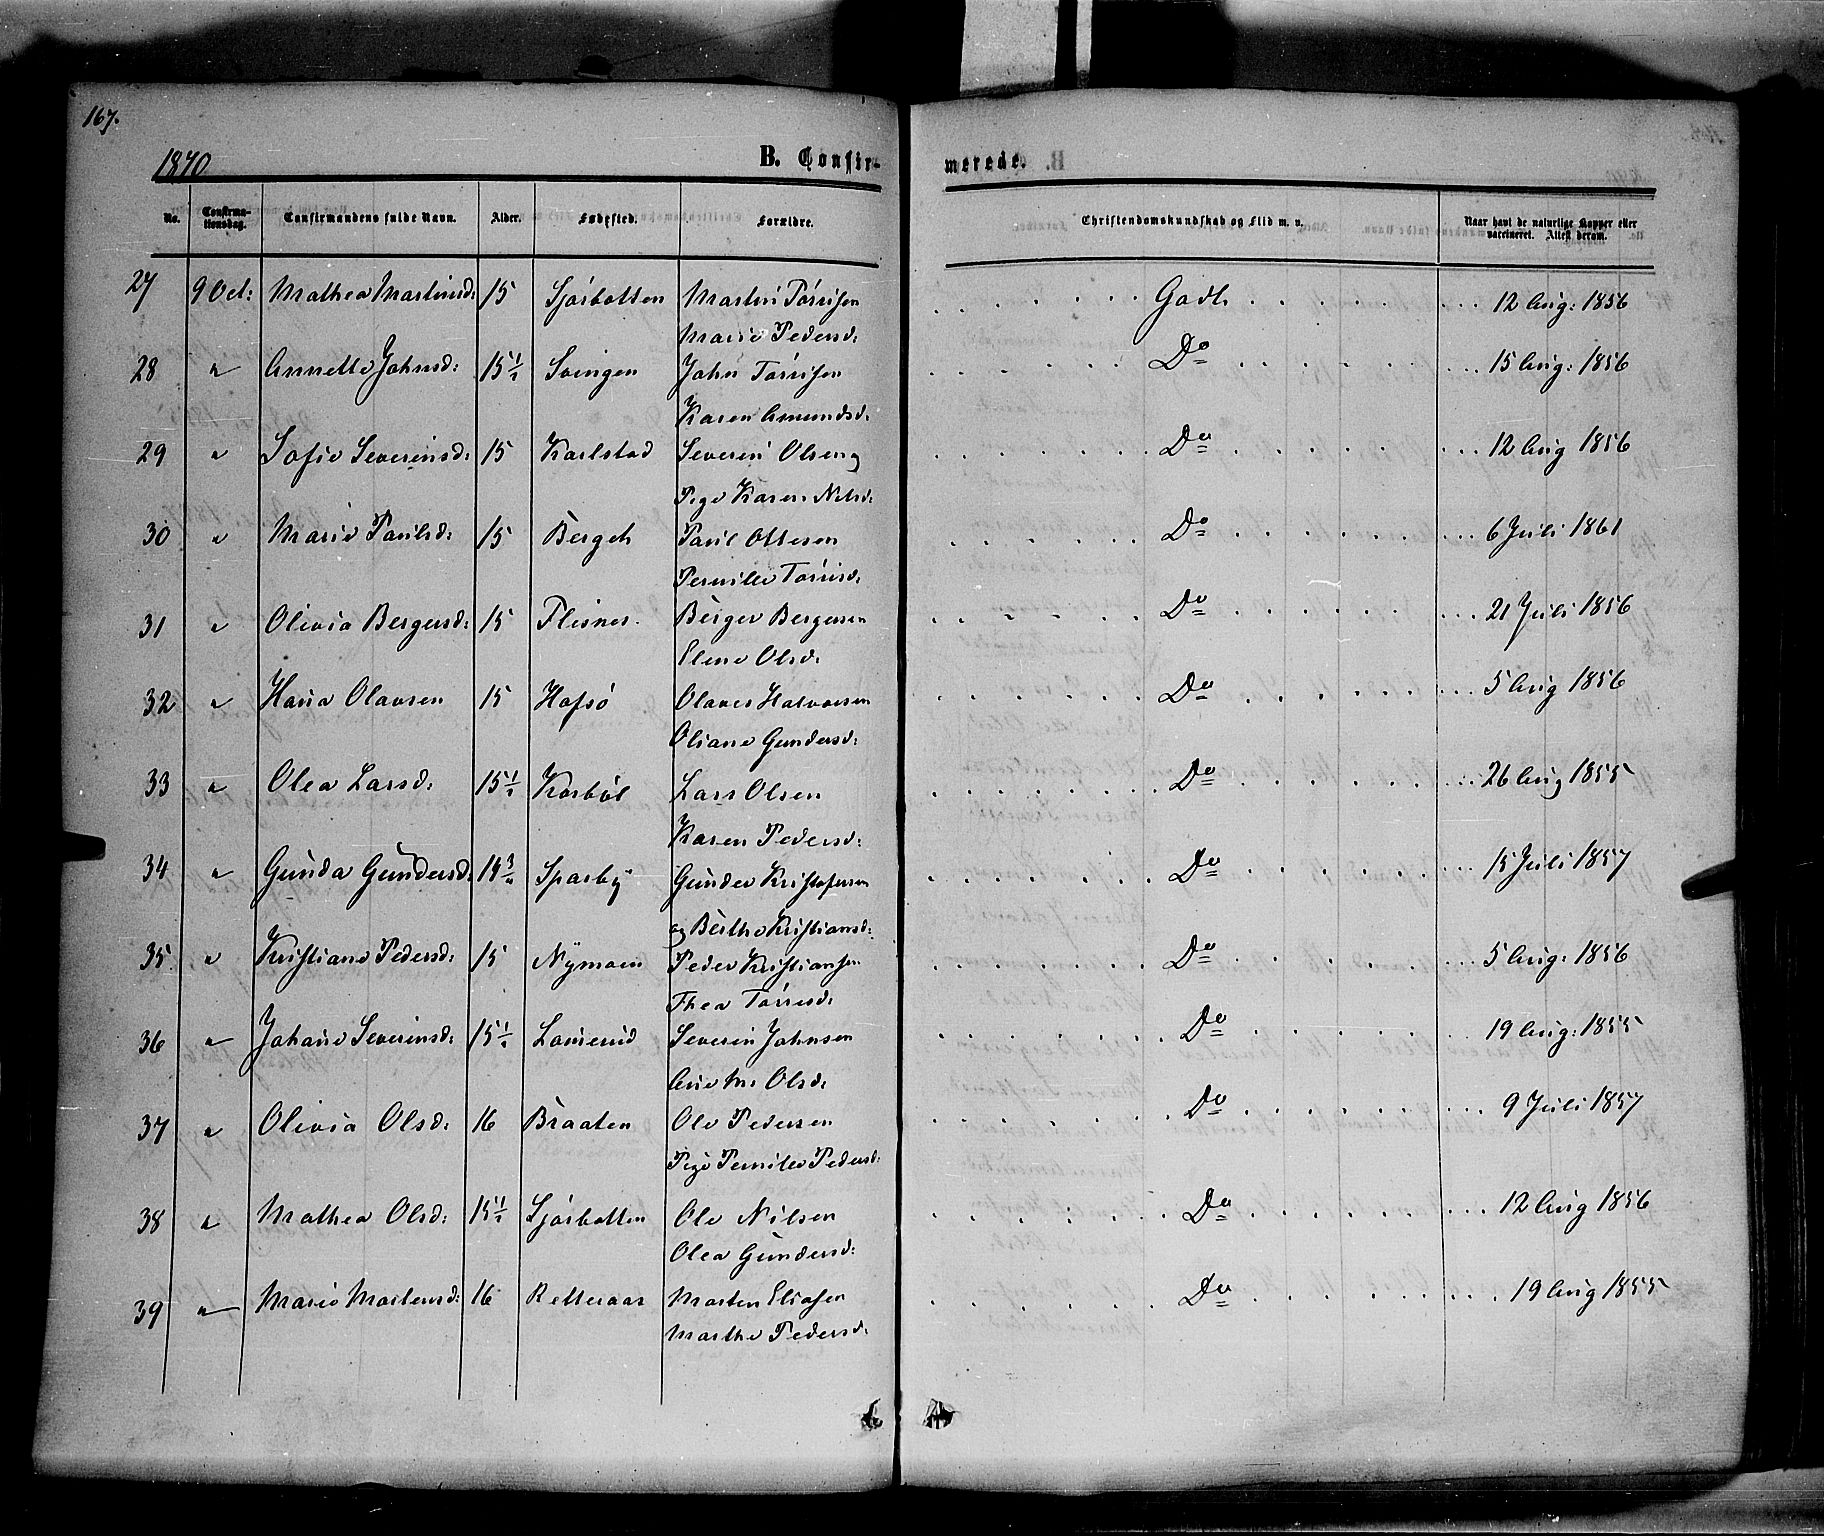 167.
1870
B. Confir-
merede.
No.
Confirma-
tionsdag.
Confirmandens fulde Navn.
Alder.
Fødested.
Forældre.
Christendomskundskab og Flid m. v.
Naar havt de naturlige Kopper eller
vaccineret. Attest derom.
27 9 Oct: Mathea Martinsd: 15 Sjørbotten Martin Torrisen Godt 12 Aug: 1856
Marie Pedersd:
28 " Annette Johnsd: 15 1/2 Svingen John Torrisen Do 15 Aug: 1856
Karen Amundsd:
29 " Sofie Severinsd: 15 Karlstad Severin Olsen og Do 12 Aug 1856
Pige Karen Nilsd:
30 " Marie Paulsd: 15 Berget Paul Ottesen Do 6 Juli 1861
Pernille Torrisd:
31 " Olivia Bergersd: 15 Flisnes Berger Bergersen Do 21 Juli 1856
Eline Olsd:
32 " Hana Olavsen 15 Hafsö Olaves Halvorsen Do 5 Aug 1856
Oliane Gundersd:
33 " Olea Larsd: 15 1/2 Karböl Lars Olsen Do 26 Aug 1855
Karen Pedersd:
34 " Gunda Gundersd: 14 3/4 Sparby Gunder Kristofersen Do 15 Juli 1857
og Berthe Kristiansd:
35 " Kristiane Pedersd: 15 Nymoen Peder Kristiansen Do 5 Aug: 1856
Thea Torresd:
36 " Johane Severinsd: 15 1/2 Severin Johnsen Do 19 Aug: 1855
Ane M: Olsd:
37 " Olivia Olsd: 16 Braaten Ole Pedersen Do 9 Juli 1857
Pige Pernille Pedersd:
38 " Mathea Olsd: 15 1/2 Sjørbotten Ole Nilsen Do 12 Aug 1856
Olea Gundersd:
39 " Marie Martensd: 16 Marten Eliasen Do 19 Aug 1855
Marthe Pedersd: